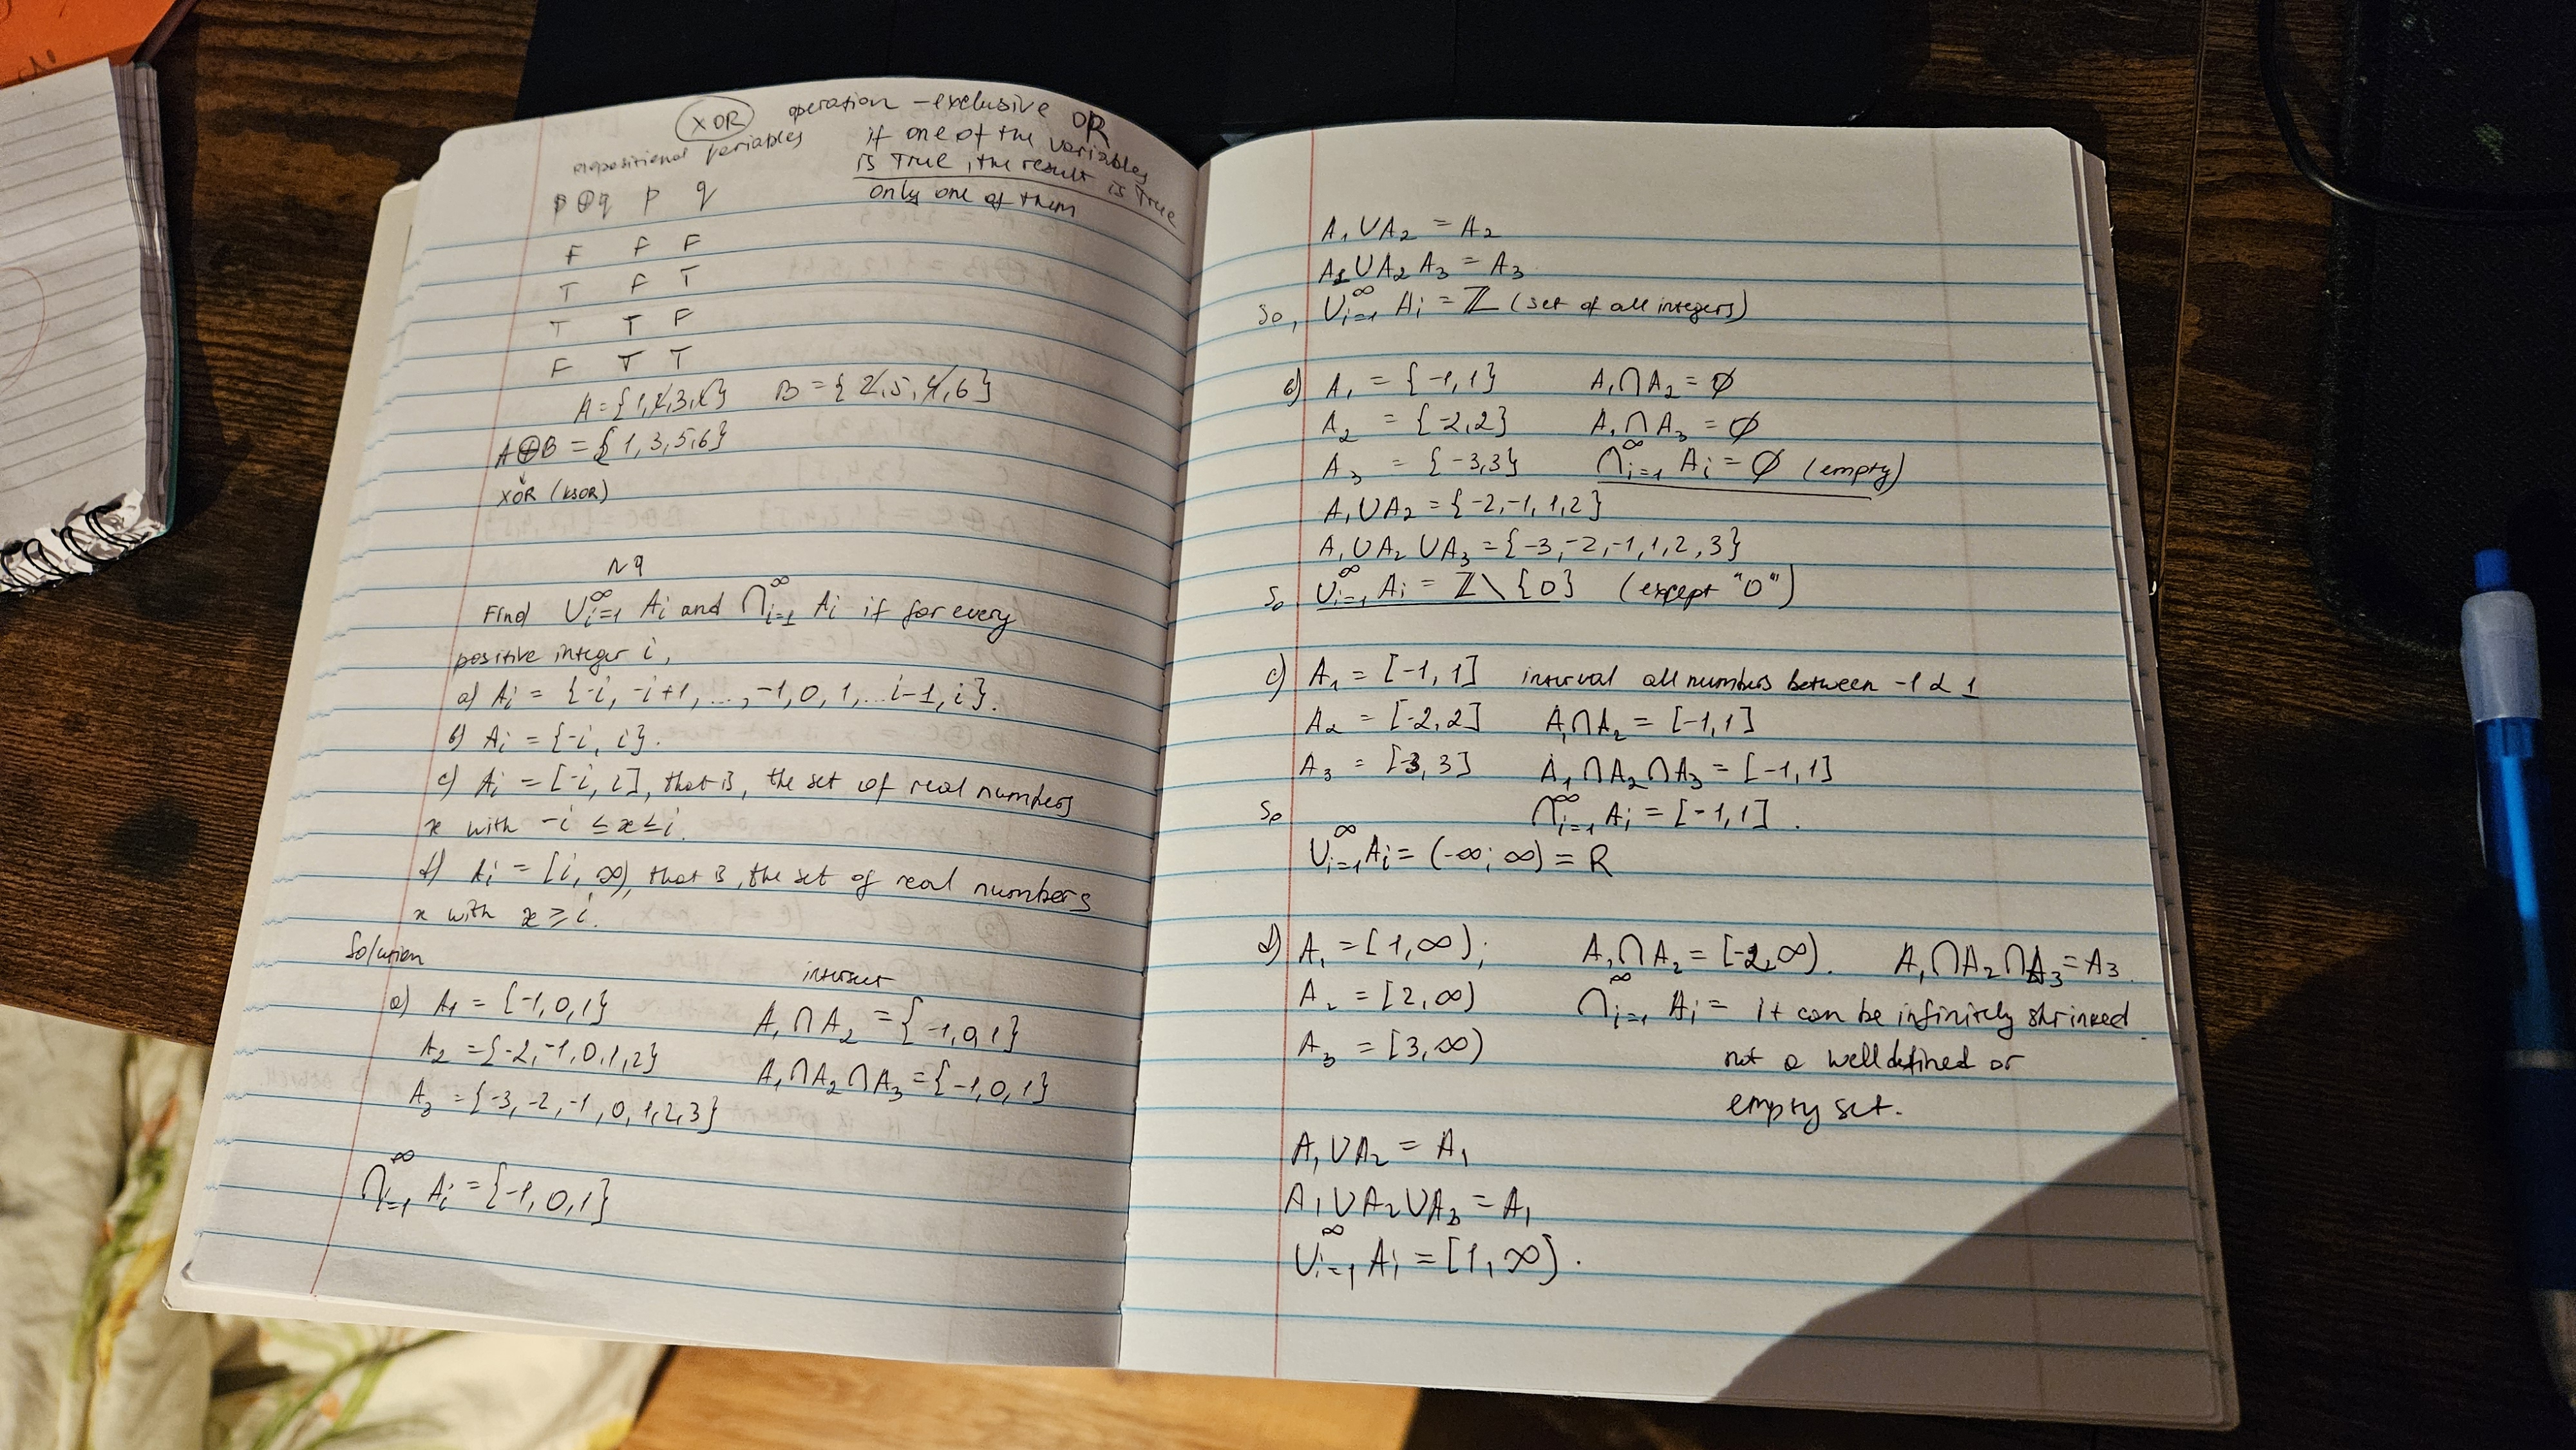 XOR operation - exclusive OR
propositional variables if one of the variables
is True, the result is True
only one of them
p⊕q p q
F F F
T F T
T T F
F T T
A = {1,2,3,4} B = {2,5,4,6}
A⊕B = {1,3,5,6}
XOR (ksor)
N9
Find ∪i=1^∞ Ai and ∩i=1^∞ Ai if for every
positive integer i,
a) Ai = {-i, -i+1, ..., -1, 0, 1, ... i-1, i}.
b) Ai = {-i, i}.
c) Ai = [-i, i], that is, the set of real numbers
x with -i ≤ x ≤ i.
d) Ai = [i, ∞), that is, the set of real numbers
x with x ≥ i.
Solution
intersect
a) A1 = {-1,0,1} A1∩A2 = {-1,0,1}
A2 = {-2,-1,0,1,2} A1∩A2∩A3 = {-1,0,1}
A3 = {-3,-2,-1,0,1,2,3}
∩i=1^∞ Ai = {-1,0,1}
A1∪A2 = A2
A1∪A2 A3 = A3
So, ∪i=1^∞ Ai = Z (set of all integers)
b) A1 = {-1,1} A1∩A2 = ∅
A2 = {-2,2} A1∩A3 = ∅
A3 = {-3,3} ∩i=1^∞ Ai = ∅ (empty)
A1∪A2 = {-2,-1,1,2}
A1∪A2∪A3 = {-3,-2,-1,1,2,3}
So ∪i=1^∞ Ai = Z \ {0} (except "0")
c) A1 = [-1,1] interval all numbers between -1 & 1
A2 = [-2,2] A1∩A2 = [-1,1]
A3 = [-3,3] A1∩A2∩A3 = [-1,1]
So ∩i=1^∞ Ai = [-1,1].
∪i=1^∞ Ai = (-∞; ∞) = R
d) A1 = [1,∞); A1∩A2 = [-2,∞). A1∩A2∩A3 = A3.
A2 = [2,∞) ∩i=1^∞ Ai = it can be infinitely shrinked.
A3 = [3,∞) not a well defined or
empty set.
A1∪A2 = A1
A1∪A2∪A3 = A1
∪i=1^∞ Ai = [1,∞).